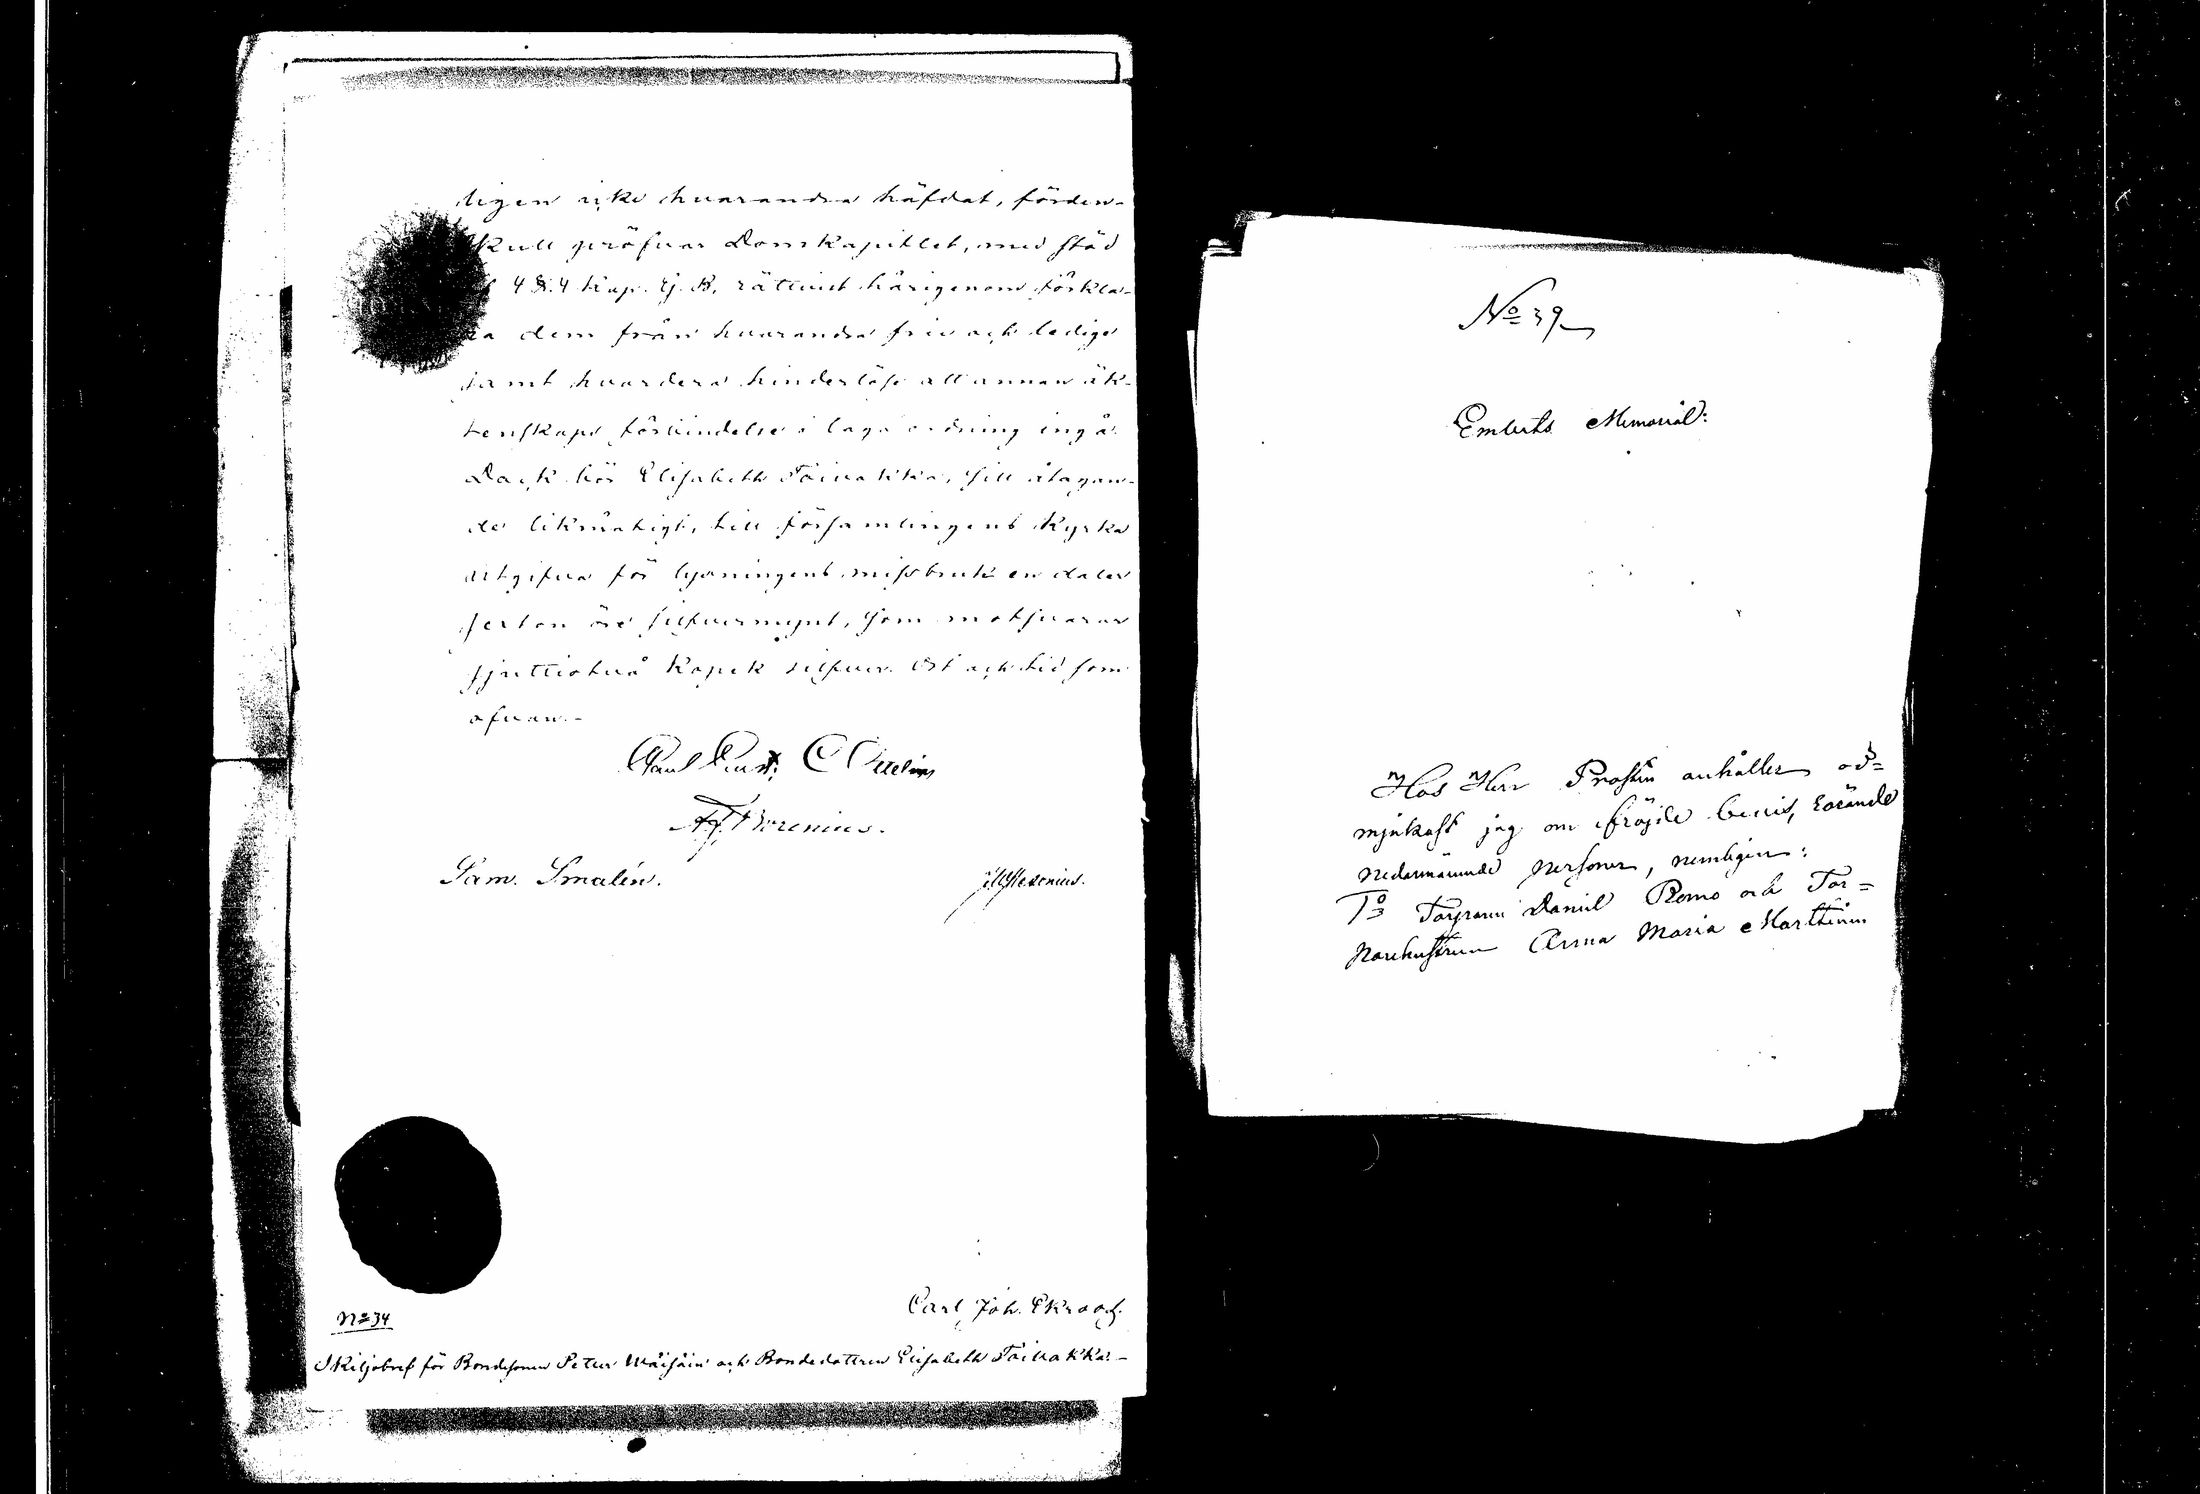 ligen icke hvarandra häfdat, förden-
skull pröfvar Domkapitlet, med stöd
4 §. 4 Kap. G. B., rättvist härigenom förkla-
ra dem från hvarandra fria och lediga
samt hvardera hinderlöst att annan äk-
tenskaps förbindelse i laga ordning ingå.
Dock bör Elisabeth Toivakka, sitt åtagan-
de likmätigt, till församlingens Kyrka
utgifva för lysningens missbruk en daler
sexton öre silfvermynt, som motsvarar
sjuttiotvå Kopek silfver. Ort och tid som
ofvan.-
Ottelin
Borenius.
Sam. Smalén.
Carl Joh. Ekroos.
No 34
Skiljobref för Bondesonen Petter Wäisäin och Bondedottren Elisabeth Toivakka.-
No 39
Embets Memorial:
Hos Herr Prosten anhåller öd=
mjukast jag om fräjde bevis, rörande
nedannämnde personer, nemligen:
1o Torparen Daniel Romo och Tor=
parehustrun Anna Maria Marttinen